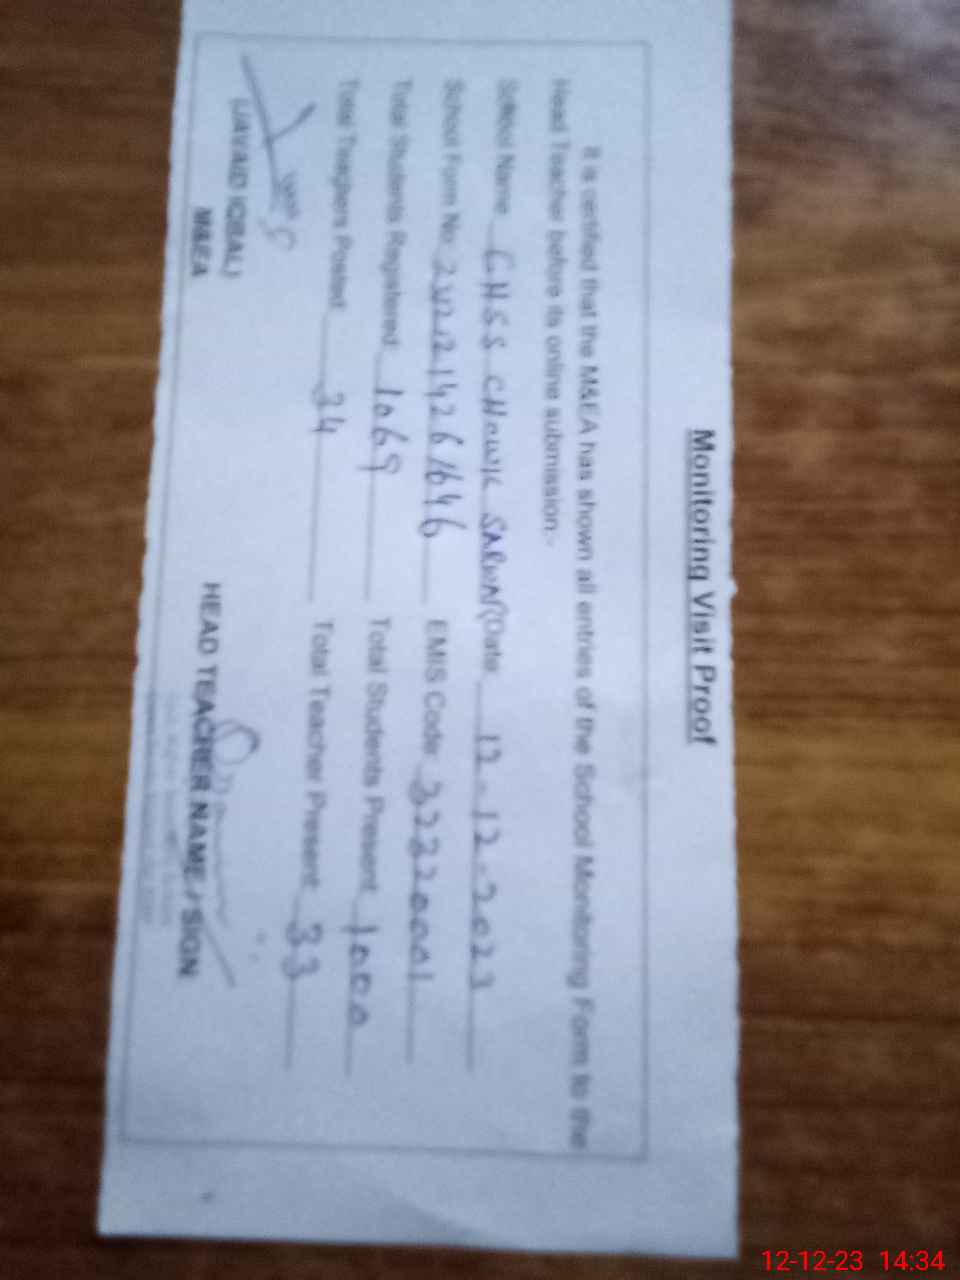 Monitoring Visit Proof
It is certified that the M&EA has shown all entries of the School Monitoring Form to the
Head Teacher before its online submission:-
School Name GHSS CHOWK SARWAR Date 12-12-2023
School Form No. EMIS Code 32220001
Total Students Registered 1069 Total Students Present 1000
Total Teachers Posted 34 Total Teacher Present 33
(JAVAID IQBAL)
M&EA
HEAD TEACHER NAME / SIGN
12-12-23 14:34